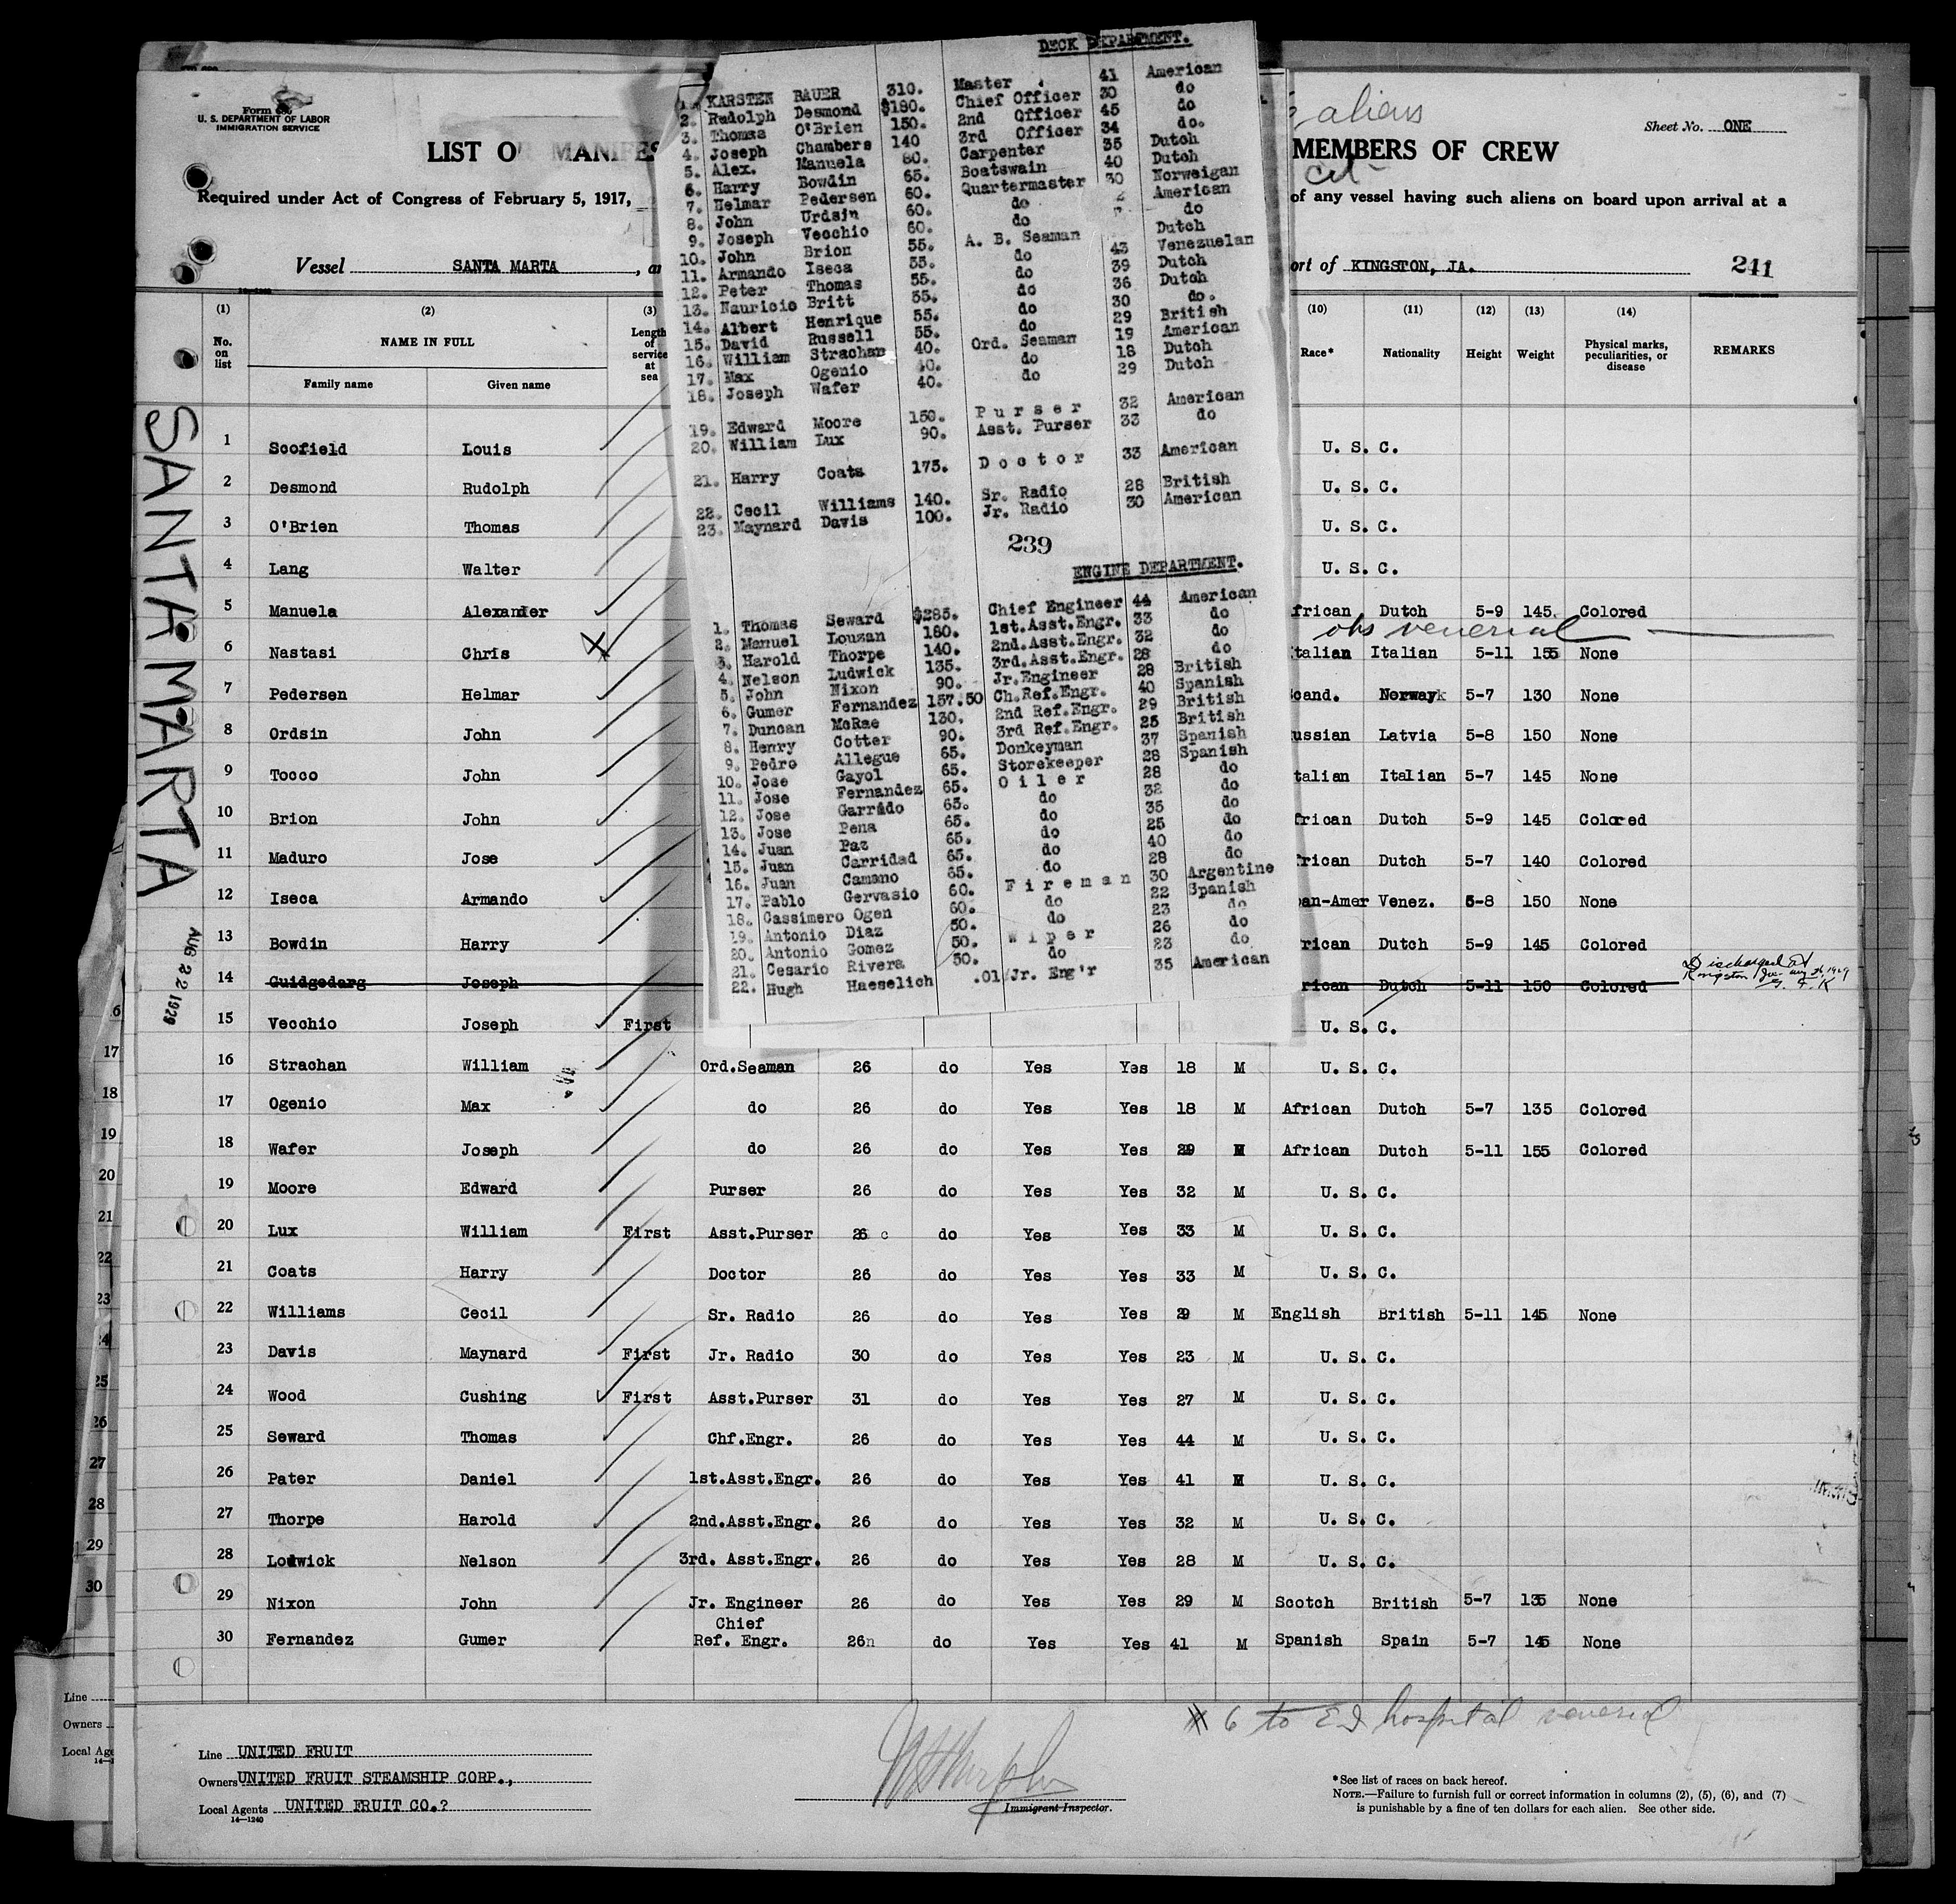 Form 680
U. S. DEPARTMENT OF LABOR
IMMIGRATION SERVICE
LIST OR MANIFES
Required under Act of Congress of February 5, 1917,
Vessel SANTA MARTA
aliens
Sheet No. ONE
MEMBERS OF CREW
of any vessel having such aliens on board upon arrival at a
ort of KINGSTON, JA. 241
DECK DEPARTMENT.
1. KARSTEN BAUER 310. Master 41 American
2. Rudolph Desmond $180. Chief Officer 30 do
3. Thomas O'Brien 150. 2nd Officer 45 do
4. Joseph Chambers 140 3rd Officer 34 do.
5. Alex. Manuela 80. Carpenter 35 Dutch
6. Harry Bowdin 65. Boatswain 40 Dutch
7. Helmar Pedersen 60. Quartermaster 30 Norweigan
8. John Urdsin 60. do 2 American
9. Joseph Vecchio 60. do do
10. John Brion 55. A. B. Seaman Dutch
11. Armando Iseca 55. do 43 Venezuelan
12. Peter Thomas 55. do 39 Dutch
13. Nauricio Britt 55. do 36 Dutch
14. Albert Henrique 55. do 30 do.
15. David Russell 55. do 29 British
16. William Strachan 40. Ord. Seaman 19 American
17. Max Ogenio 40. do 18 Dutch
18. Joseph Wafer 40. do 29 Dutch
19. Edward Moore 150. Purser 32 American
20. William Lux 90. Asst. Purser 33 do
21. Harry Coats 175. Doctor 33 American
22. Cecil Williams 140. Sr. Radio 28 British
23. Maynard Davis 100. Jr. Radio 30 American
239
ENGINE DEPARTMENT.
1. Thomas Seward $285. Chief Engineer 44 American
2. Manuel Louzan 180. 1st.Asst.Engr. 33 do
3. Harold Thorpe 140. 2nd.Asst.Engr. 32 do
4. Nelson Ludwick 135. 3rd.Asst.Engr. 28 do
5. John Nixon 90. Jr.Engineer 28 British
6. Gumer Fernandez 157.50 Ch.Ref.Engr. 40 Spanish
7. Duncan McRae 130. 2nd Ref.Engr. 29 British
8. Henry Cotter 90. 3rd Ref.Engr. 25 British
9. Pedro Allegue 65. Donkeyman 37 Spanish
10. Jose Gayol 65. Storekeeper 28 Spanish
11. Jose Fernandez 65. Oiler 28 do
12. Jose Garrido 65. do 32 do
13. Jose Pena 65. do 35 do
14. Juan Paz 65. do 25 do
15. Juan Carridad 65. do 40 do
16. Juan Camano 65. do 28 do
17. Pablo Gervasio 60. Fireman 30 Argentine
18. Cassimero Ogen 60. do 22 Spanish
19. Antonio Diaz 50. do 23 do
20. Antonio Gomez 50. Wiper 26 do
21. Cesario Rivera 50. do 23 do
22. Hugh Haeselich .01 Jr. Eng'r 35 American
(1) (2) (3) (10) (11) (12) (13) (14)
No. on list NAME IN FULL Length of service at sea Race* Nationality Height Weight Physical marks, peculiarities, or disease REMARKS
Family name Given name
SANTA MARTA
AUG 22 1929
1 Scofield Louis U. S. C.
2 Desmond Rudolph U. S. C.
3 O'Brien Thomas U. S. C.
4 Lang Walter U. S. C.
5 Manuela Alexander frican Dutch 5-9 145 Colored
obs venereal
6 Nastasi Chris talian Italian 5-11 155 None
7 Pedersen Helmar cand. Norway 5-7 130 None
8 Ordsin John ussian Latvia 5-8 150 None
9 Tocco John talian Italian 5-7 145 None
10 Brion John frican Dutch 5-9 145 Colored
11 Maduro Jose frican Dutch 5-7 140 Colored
12 Iseca Armando pan-Amer Venez. 5-8 150 None
13 Bowdin Harry rican Dutch 5-9 145 Colored
14 Guidgedarg Joseph rican Dutch 5-11 150 Colored Discharged at
Kingston Jca
15 Vecchio Joseph First U. S. C.
16 Strachan William Ord.Seaman 26 do Yes Yes 18 M U. S. C.
17 Ogenio Max do 26 do Yes Yes 18 M African Dutch 5-7 135 Colored
18 Wafer Joseph do 26 do Yes Yes 29 M African Dutch 5-11 155 Colored
19 Moore Edward Purser 26 do Yes Yes 32 M U. S. C.
20 Lux William First Asst.Purser 26 do Yes Yes 33 M U. S. C.
21 Coats Harry Doctor 26 do Yes Yes 33 M U. S. C.
22 Williams Cecil Sr. Radio 26 do Yes Yes 29 M English British 5-11 145 None
23 Davis Maynard First Jr. Radio 30 do Yes Yes 23 M U. S. C.
24 Wood Cushing First Asst.Purser 31 do Yes Yes 27 M U. S. C.
25 Seward Thomas Chf.Engr. 26 do Yes Yes 44 M U. S. C.
26 Pater Daniel 1st.Asst.Engr. 26 do Yes Yes 41 M U. S. C.
27 Thorpe Harold 2nd.Asst.Engr. 26 do Yes Yes 32 M U. S. C.
28 Lodwick Nelson 3rd. Asst.Engr. 26 do Yes Yes 28 M U. S. C.
29 Nixon John Jr. Engineer 26 do Yes Yes 29 M Scotch British 5-7 135 None
30 Fernandez Gumer Chief Ref. Engr. 26 do Yes Yes 41 M Spanish Spain 5-7 145 None
# 6 to E I hospital venereal
Line UNITED FRUIT
Owners UNITED FRUIT STEAMSHIP CORP.,
Local Agents UNITED FRUIT CO.?
14—1240
Immigrant Inspector.
*See list of races on back hereof.
NOTE.—Failure to furnish full or correct information in columns (2), (5), (6), and (7)
is punishable by a fine of ten dollars for each alien. See other side.
6
17
18
19
20
21
22
23
24
25
26
27
28
29
30
Line
Owners
Local Age